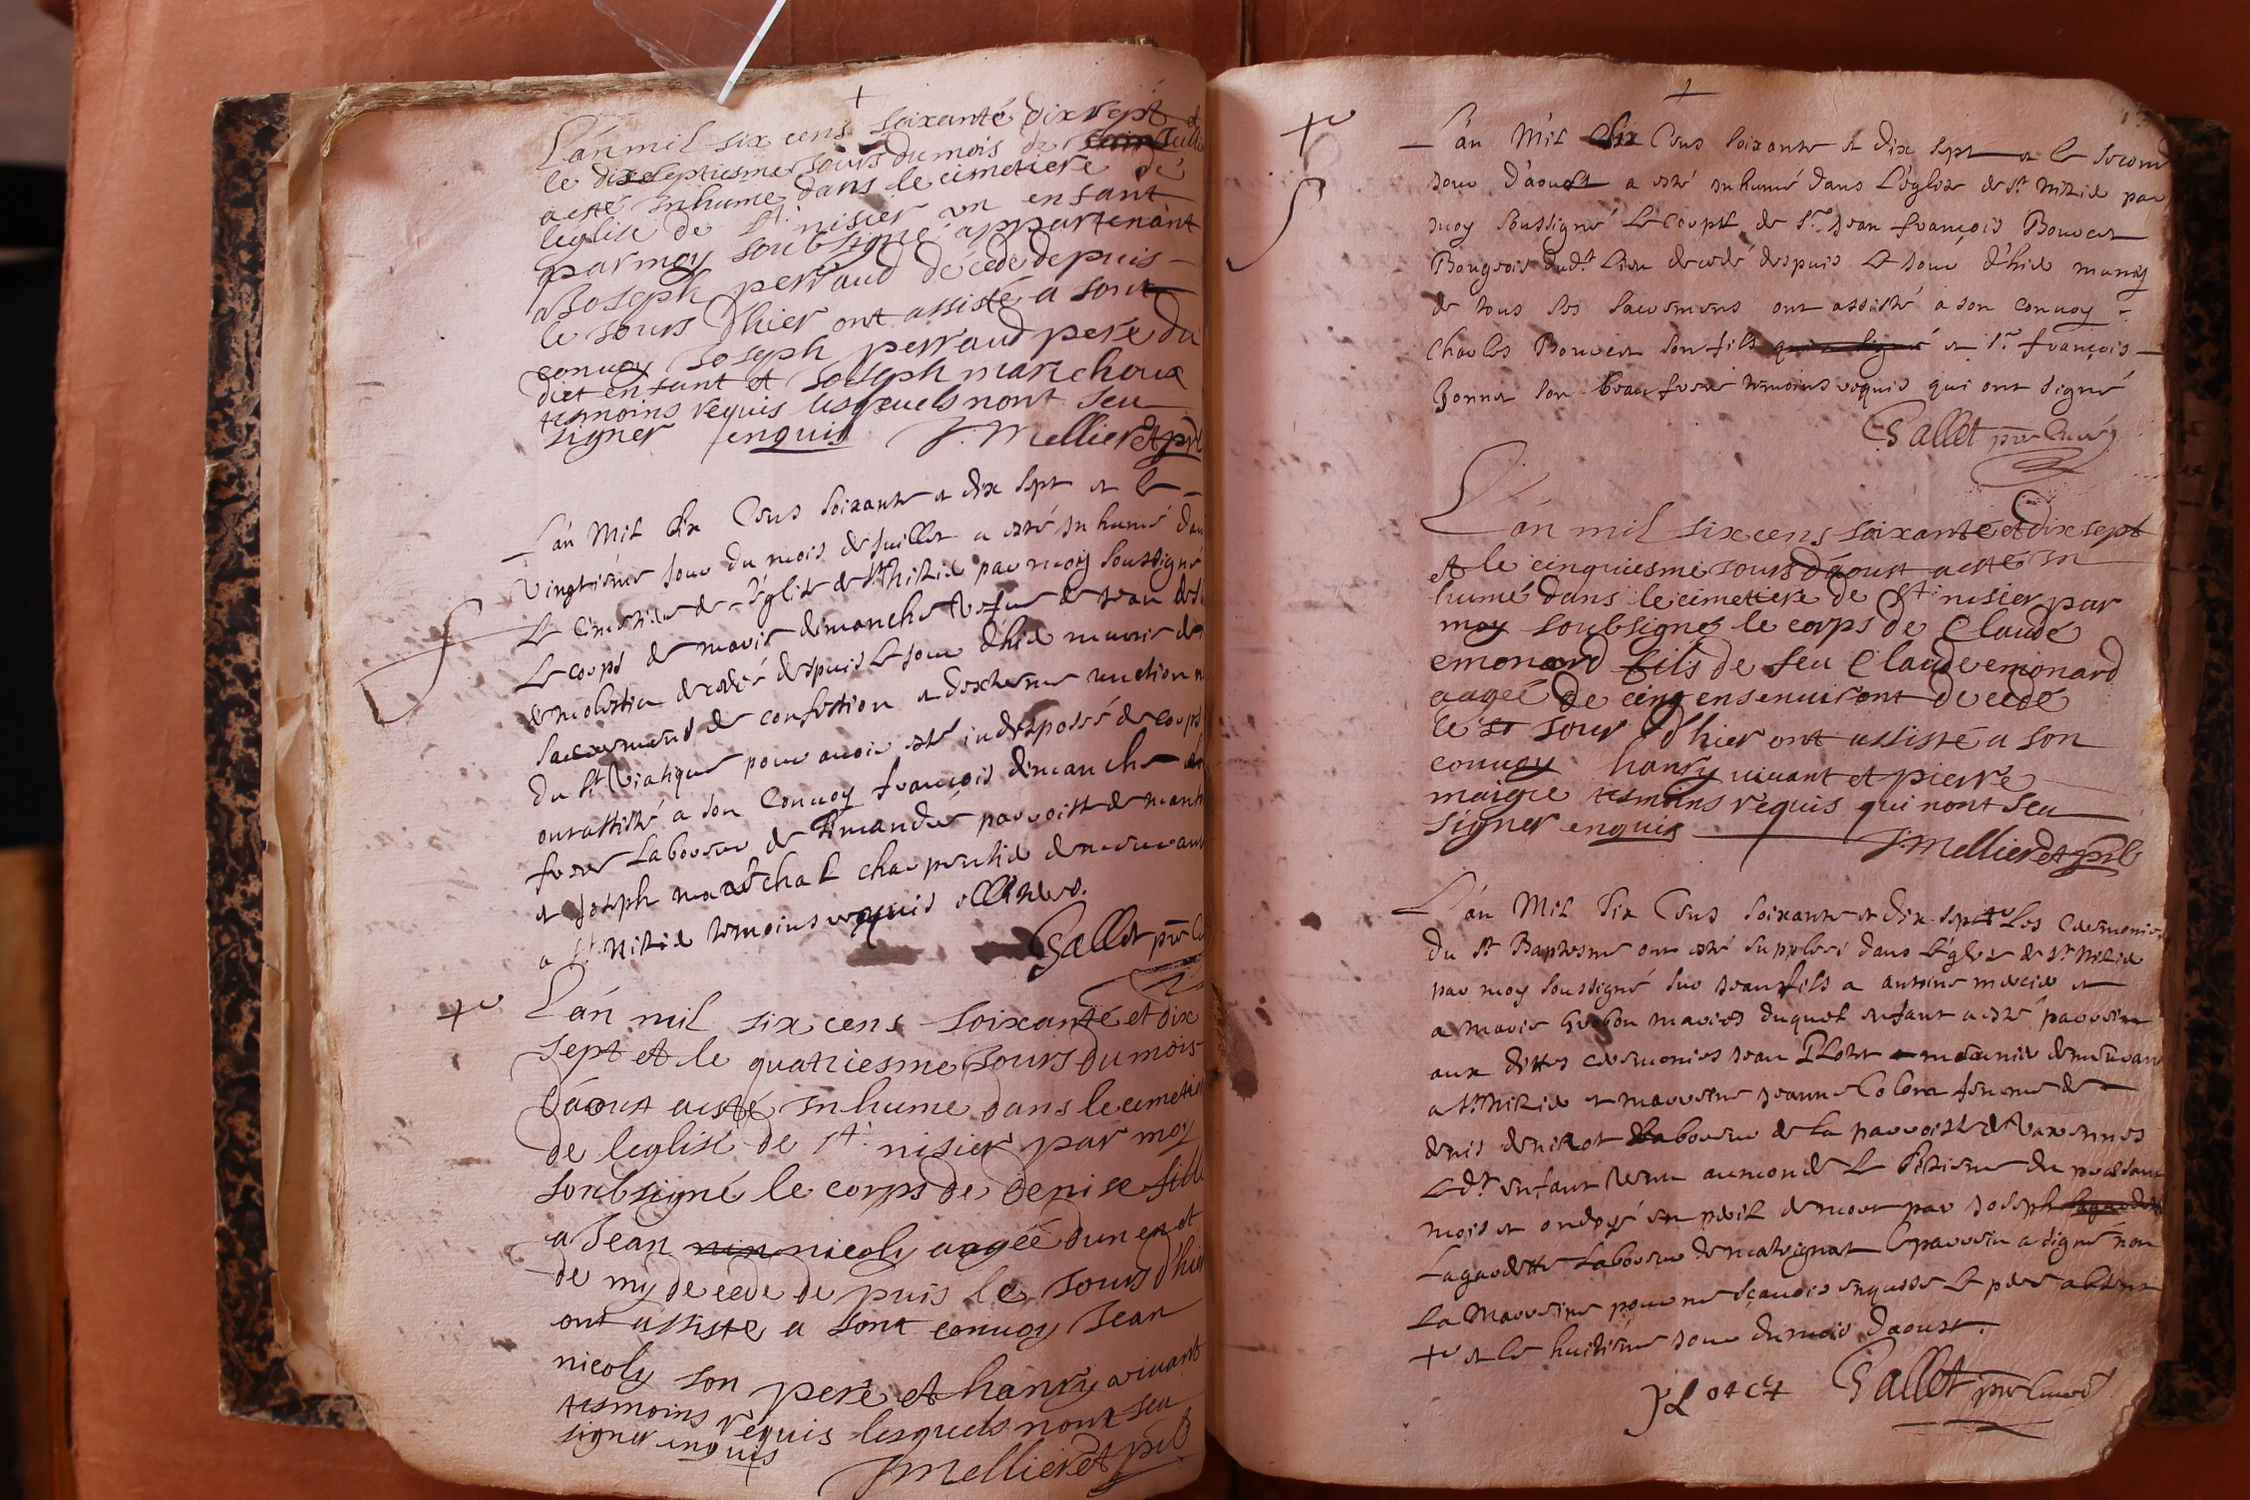 L'an mil six cens soixante dix sept et
le dixseptiesme jours du mois de Juillet
a esté inhume dans le cimetiere de
leglise de St. nisier un enfant
par moy soubsigné appartenant
a Joseph perraud décedé depuis
le jours d'hier ont assisté a sont
convoy Joseph perraud pere du
dict enfant et Joseph marechoux
tesmoins requis lesquels nont seu
signer enquis J. Mellieret pbr
L'an Mil Six Cens soixante et dix sept et le
vingtiesme jour du mois de Juillet a esté inhumé dans
le Cimetiere de l'église de St Nizie par moy soussigné
le corps de marie dimanche vefve de jean
demolestier decedée despuis le jour d'hie munie des
sacremens de confession et d'extreme unction
du St Viatique pour avoir esté indisposée de corps
ont assisté a son Convoy françois dimanche
frere laboureur de parroisse de
et Joseph mareschal charpentie demeurant
a St. Nizie temoins requis illiteres.
Gallet pre Cu
L'an mil six cens soixante et dix
sept et le quatriesme jours du mois
d'aoust a esté inhume dans le cimetie
de leglise de St. nisier par moy
soubsigné le corps de denise fille
a Jean nicoly aagéé dun en et
de my decede de puis le jours d'hier
ont assiste a sont convoy Jean
nicoly son peré et hanry vivant
tesmoins requis lesquels nont seu
signer enquis
J Mellieret pbr
L'an Mil Six Cens soixante et dix sept et le second
jour d'aoust a esté inhumé dans L'église de St Nizie par
moy soussigné le corps de Sr. jean françois Bouver
Bourgeois dudt. lieu decedé despuis le jour d'hie muny
de tous les sacremens ont assisté a son convoy
Charles Bouver son fils qui a signé et Sr. françois
Bonnet son beau frere temoins requis qui ont signé
Gallet pre Curé
L'an mil six cens soixante et dix sept
et le cinquiesme jours d'aoust a esté in
humé dans le cimettere de St nisier par
moy soubsigner le corps de Claude
emonard fils de feu Claude emonard
aagéé de cinq ens enuiront decedé
le jour d'hier ont assisté a son
convoy hanry vivant et pierre
maigre tesmoins requis qui nont seu
signer enquis J Mellieret pbr
L'an Mil Six Cens soixante et dix sept +e Les Ceremonies
du St Baptesme ont esté suppléés dans L'église de St Nizie
par moy soussigné sur jean fils a antoine mercie et
a marie Grobon mariés duquel enfant a esté parrein
aux dittes ceremonies jean Plotet meunie demeurant
a St. Nizie et marreine jeanne Colera femme de
denis laboureur de la parroisse de Varennes
Ledt enfant venu au monde le sixieme du present
mois et ondoyé en peril de mort par joseph
Lagardette laboureur de malvignat le parrein a signé non
la Marreine pour ne sçavoir enquise le pere absent
+e et le huitieme jour du mois d'aoust.
plotet Gallet pre Curé